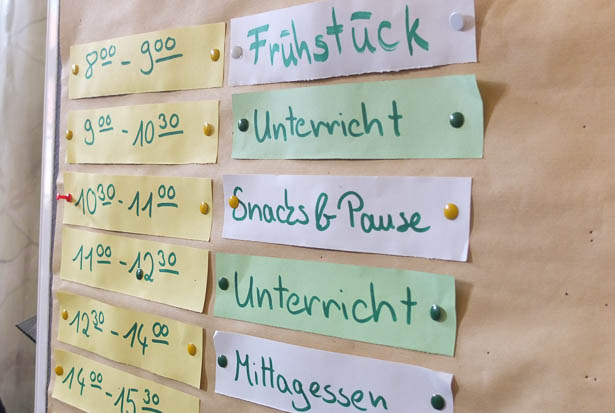 8⁰⁰ - 9⁰⁰ Frühstück
9⁰⁰ - 10³⁰ Unterricht
10³⁰ - 11⁰⁰ Snacks & Pause
11⁰⁰ - 12³⁰ Unterricht
12³⁰ - 14⁰⁰ Mittagessen
14⁰⁰ - 15³⁰